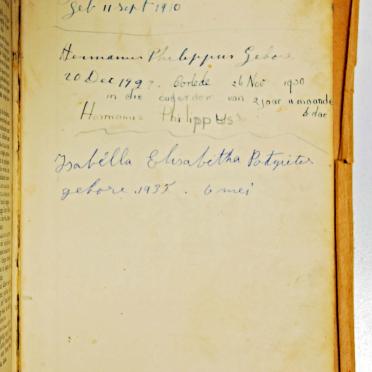 Geb 11 Sept 1910
Hermanus Philippus Gebore
20 Dec 1927. Oorlede 26 Nov 1930
in die ouderdom van 2 jaar 11 maande
6 dae
Hermanus Philippus
Isabélla Elisabetha Potgieter
gebore 1935. 6 mei